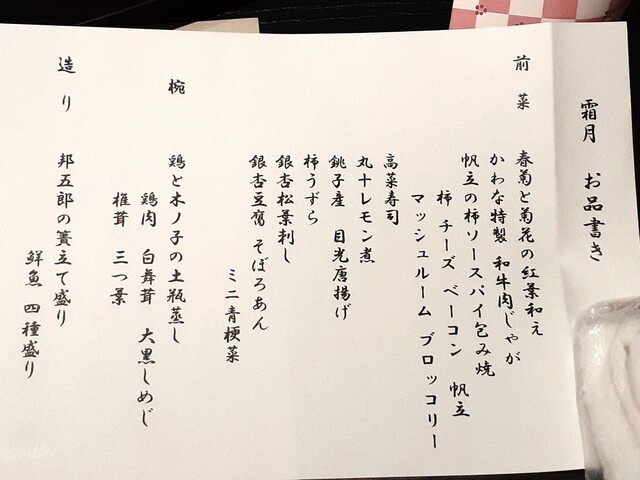 霜月 お品書き
前菜
春菊と菊花の紅葉和え
かわな特製 和牛肉じゃが
帆立の柿ソースパイ包み焼
柿 チーズ ベーコン 帆立
マッシュルーム ブロッコリー
高菜寿司
丸十レモン煮
銚子産 目光唐揚げ
柿うずら
銀杏松葉刺し
銀杏豆腐 そぼろあん
ミニ青梗菜
椀
鶏と木ノ子の土瓶蒸し
鶏肉 白舞茸 大黒しめじ
椎茸 三つ葉
造り
邦五郎の簀立て盛り
鮮魚 四種盛り